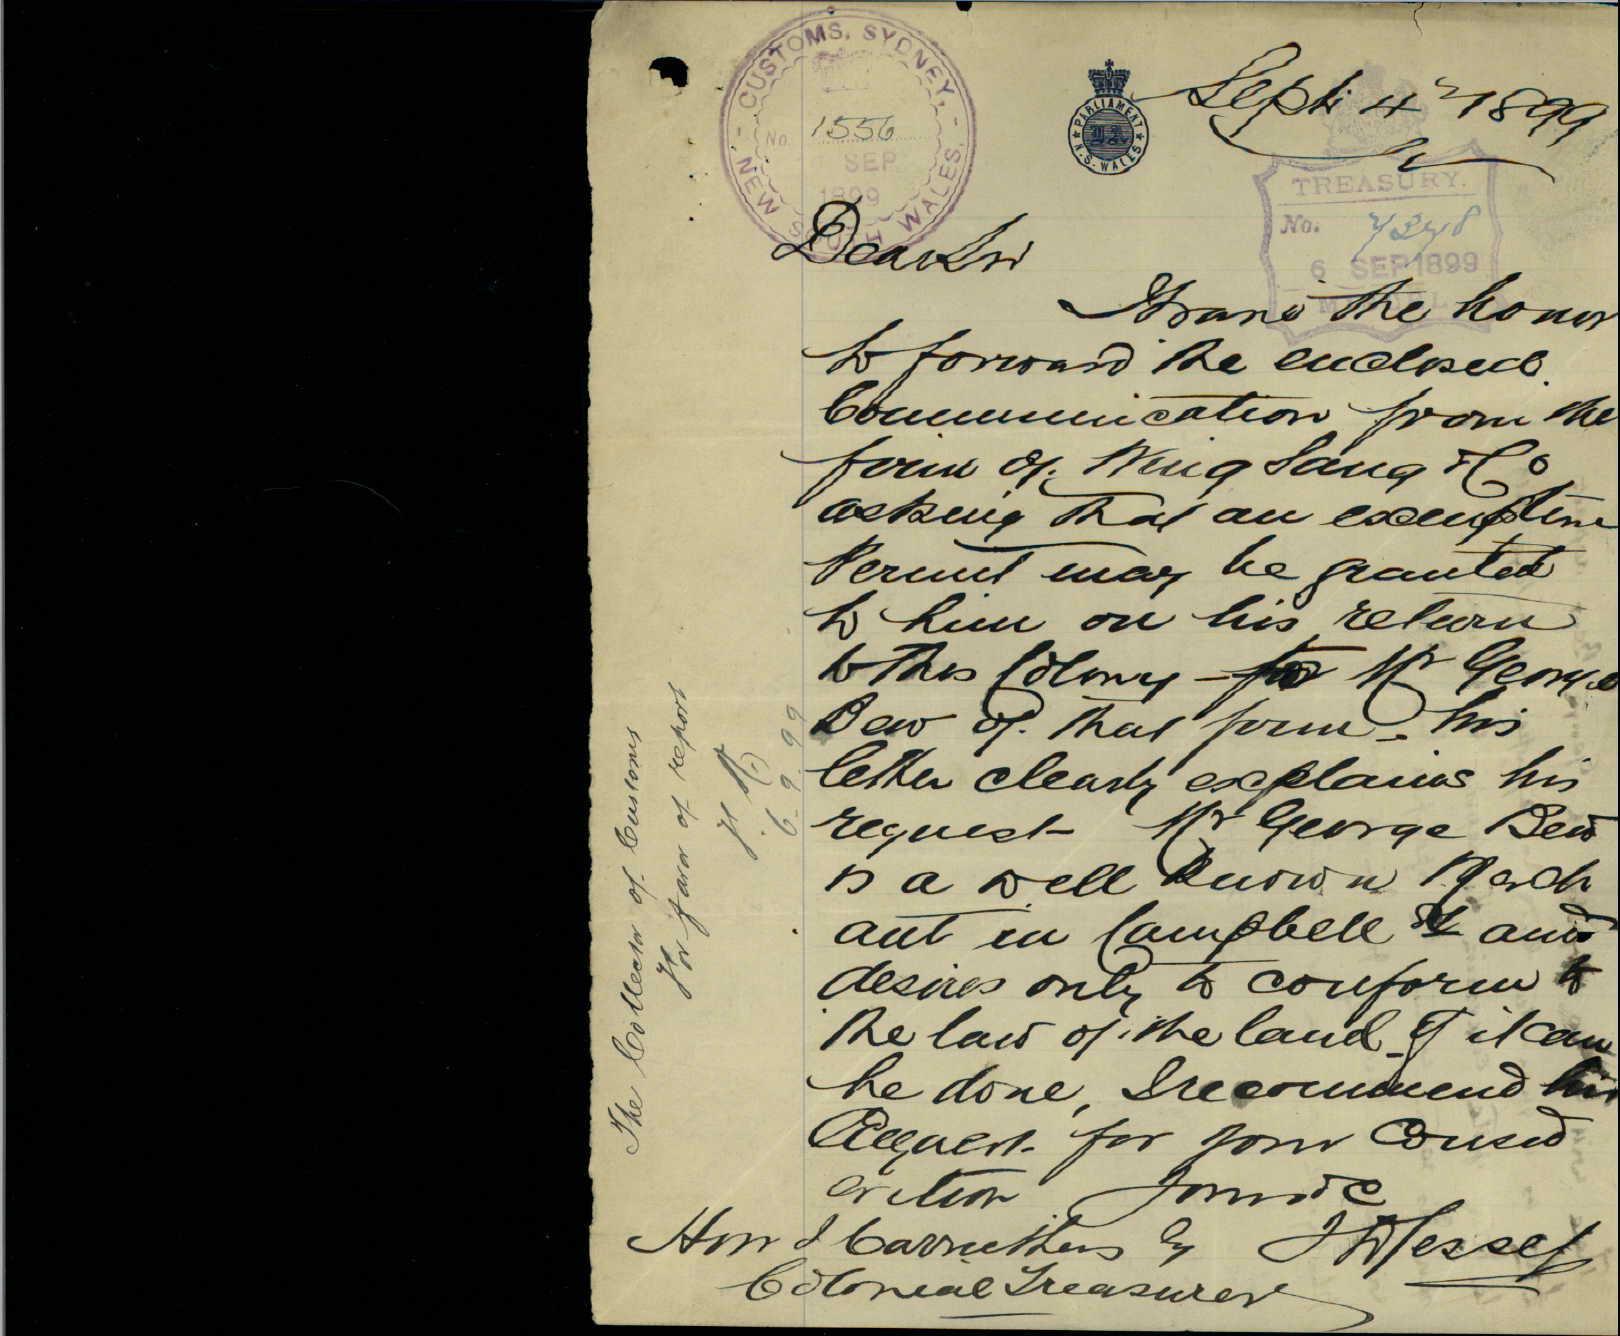 CUSTOMS, SYDNEY,
NEW SOUTH WALES.
No. 1556
SEP
1899
PARLIAMENT
N.S. WALES
Sept 4th 1899
TREASURY.
No.
6 SEP 1899
Dear Sir
I have the honor
to forward the enclosed
Communication from the
firm of Wing Sang & Co
asking that an exemption
Permit may be granted
to him on his return
to this Colony - Mr George
Bew of that firm - his
letter clearly explains his
request - Mr George Bew
is a well known Merch
ant in Campbell St and
desires only to conform to
the law of the land. If it can
be done, I recommend his
Request for your Consid
eration Yours &c
Hon J Carruthers
Colonial Treasurer
The Collector of Customs
For favor of report
6.9.99